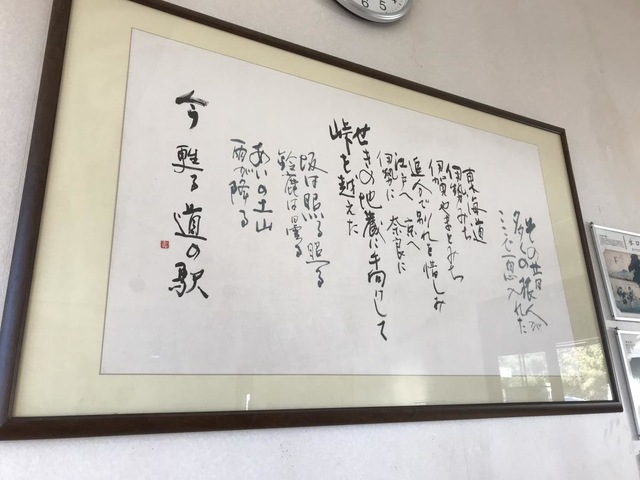 その昔
多くの旅人が
ここで一息入れた
東海道
伊勢みち
伊賀やまとみち
追分で別れを惜しみ
江戸へ 京へ
伊勢に 奈良に
せきの地蔵に手向けして
峠を越えた
坂は照る照る
鈴鹿は曇る
あいの土山
雨が降る
今 甦る 道の駅
6
5